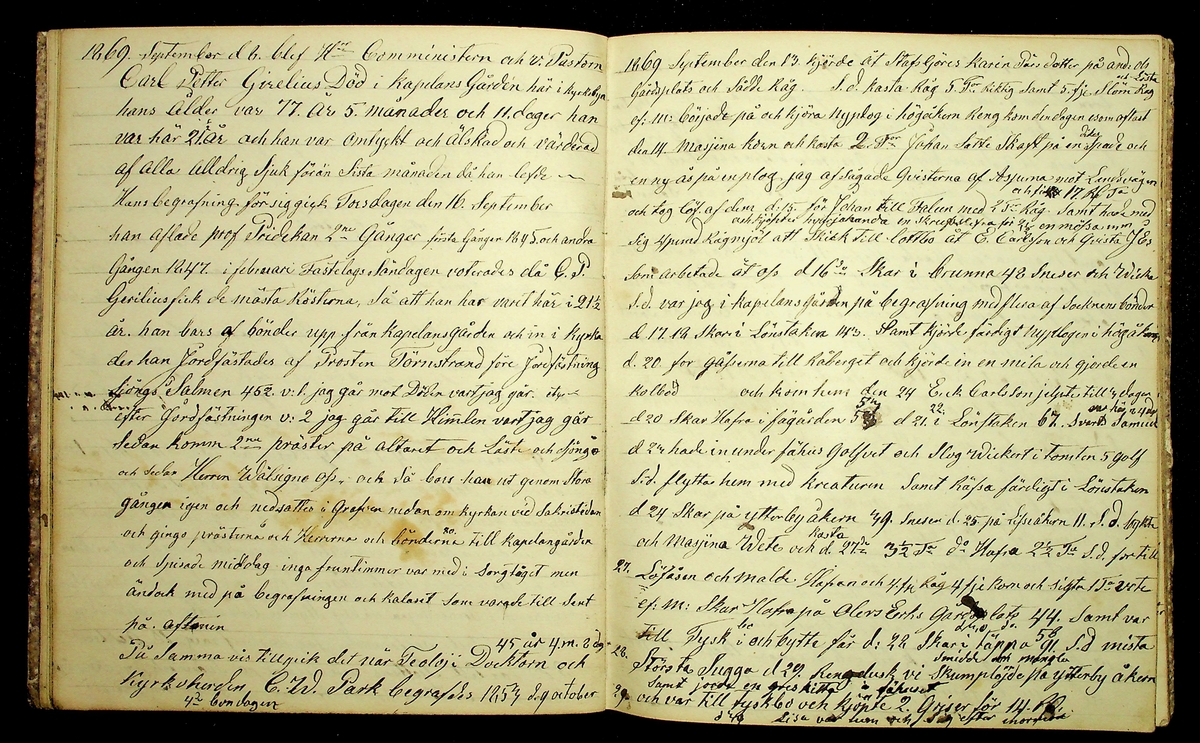 1869 September d 6. blef Hrr Comministern och v: Pastorn
Carl Petter Girelius Död i Kapelans Gården här i Kyrkobyn
hans Ålder var 77. år 5. månader och 11. dager han
var här 21 år och han var omtyckt och Älskad och värderad
af Alla alldrig Sjuk förän Sista månaden då han lefde
Hans begrafning försiggick Torsdagen den 16. September
han aflade prof Predikan 2ne Gånger första Gången 1845. och andra
Gången 1847. i februari Fastelags Söndagen voterades då C. P.
Gerilius fick de mästa Rösterna, Så att han har varet här i 21½
år. han bars af bönder upp från Kapelansgården och in i Kyrka
der han Jordfästades af Prosten Törnstrand före Jordfästning
Sjöngs Salmen 452 v: 1. jag går mot Döden vart jag går.
efter Jordfästningen v: 2 jag går till Himlen vart jag går
sedan komm 2ne präster på altaret och Läste och Sjöngo
och sedan Herren Wälsigne Oss, och Så bars han ut genom Stora
gången igen och nedsattes i Grafven nedan om kyrkan vid Sakristidan
och gingo prästerna och Herrerna och bönderna till kapelangården
och Spisade middag inga fruntimmer var med i Sorgtåget men
ändock med på begrafningen och kalaset som varade till Sent
på aftonen
45 år 4. m. 2 dag
På Samma vis tillgick det när Teologi Docktorn och
Kyrkoherden C. W. Park begrafdes 1857 den 9 october
1869 September den 13. kjörde åt Stafs Göres Karin Pärs dotter på
Gårdsplats och Sådde Råg. S.d. kasta Råg 5. Tr Samt 5. fj. Råg
ef: m: började på och kjöra nyplog i högåkern
den 14. Masjina korn och kasta 2. Tr Johan Satte Skaft på en Spade och
en ny ås på en plog. jag af Sågade Qvisterna af Asparna mot Landsvägen
och tog Löf af dem d. 15. för Johan till Falun med 2 Tr Råg. Samt hade med
Sig Rågmjöl att Skick till Lottbo åt E. Carlsson och
som arbetade åt oss d 16 Skar i brunna 48 Sneser och
S.d. var jag i kapelans gården på begrafning med flera af Socknens bönder
d. 17. 18 Skar i Lönstaken 143. Samt kjörde färdigt nyplogen i högåkern
d. 20. for Gåsserna till kåberget och kjörde in en mila och gjorde en
kolbod och kom hem den 24 E. ck Carlsson jelpte till 4 dagar
d 20 Skar Hafra i fägården d 21. 22. i Lönstaken 67.
d 24 hade in under fähus Golfvet och Slog Wickert i tomten 5 golf
S.d. flytta hem med kreaturen Samt Räfsa färdigt i Lönstaken
d 24 Skar på ytterby åkern 49. Sneser d. 25. på åkern 11. S.d. bykte
och Masjina Wete och d. 27 kasta 3½ Tr do Hafra 2½ Tr S.d. for till
27. Löfåsen och malde Hafran och 4 fj. Råg 4 fj korn och Sigta 1 Tr vete
ef: m: Skar Hafra på Olers Eriks Gårdsplats 44. Samt var
till Tyskbo och bytte får d: 28 Skar i täppa 91. S.d mista
28. Största Sugga d 29. vi Skumplöjde på ytterby åkern
29. och var till tyskbo och kjöpte 2. Griser för 14